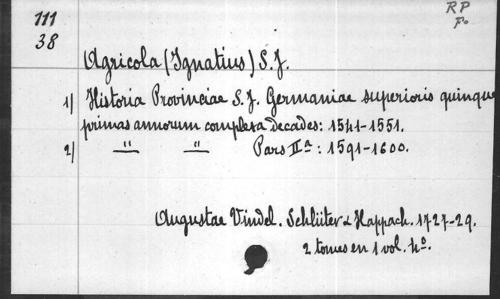 111
38
RP
Po
Agricola (Ignatius) S.J.
1) Historia Provinciae S.J. Germaniae superioris quinque
primas annorum complexa decades: 1541-1551.
2) " " Pars IIa: 1591-1600.
Augustae Vindel. Schlüter & Happach. 1727-29.
2 tomes en 1 vol. 4o.